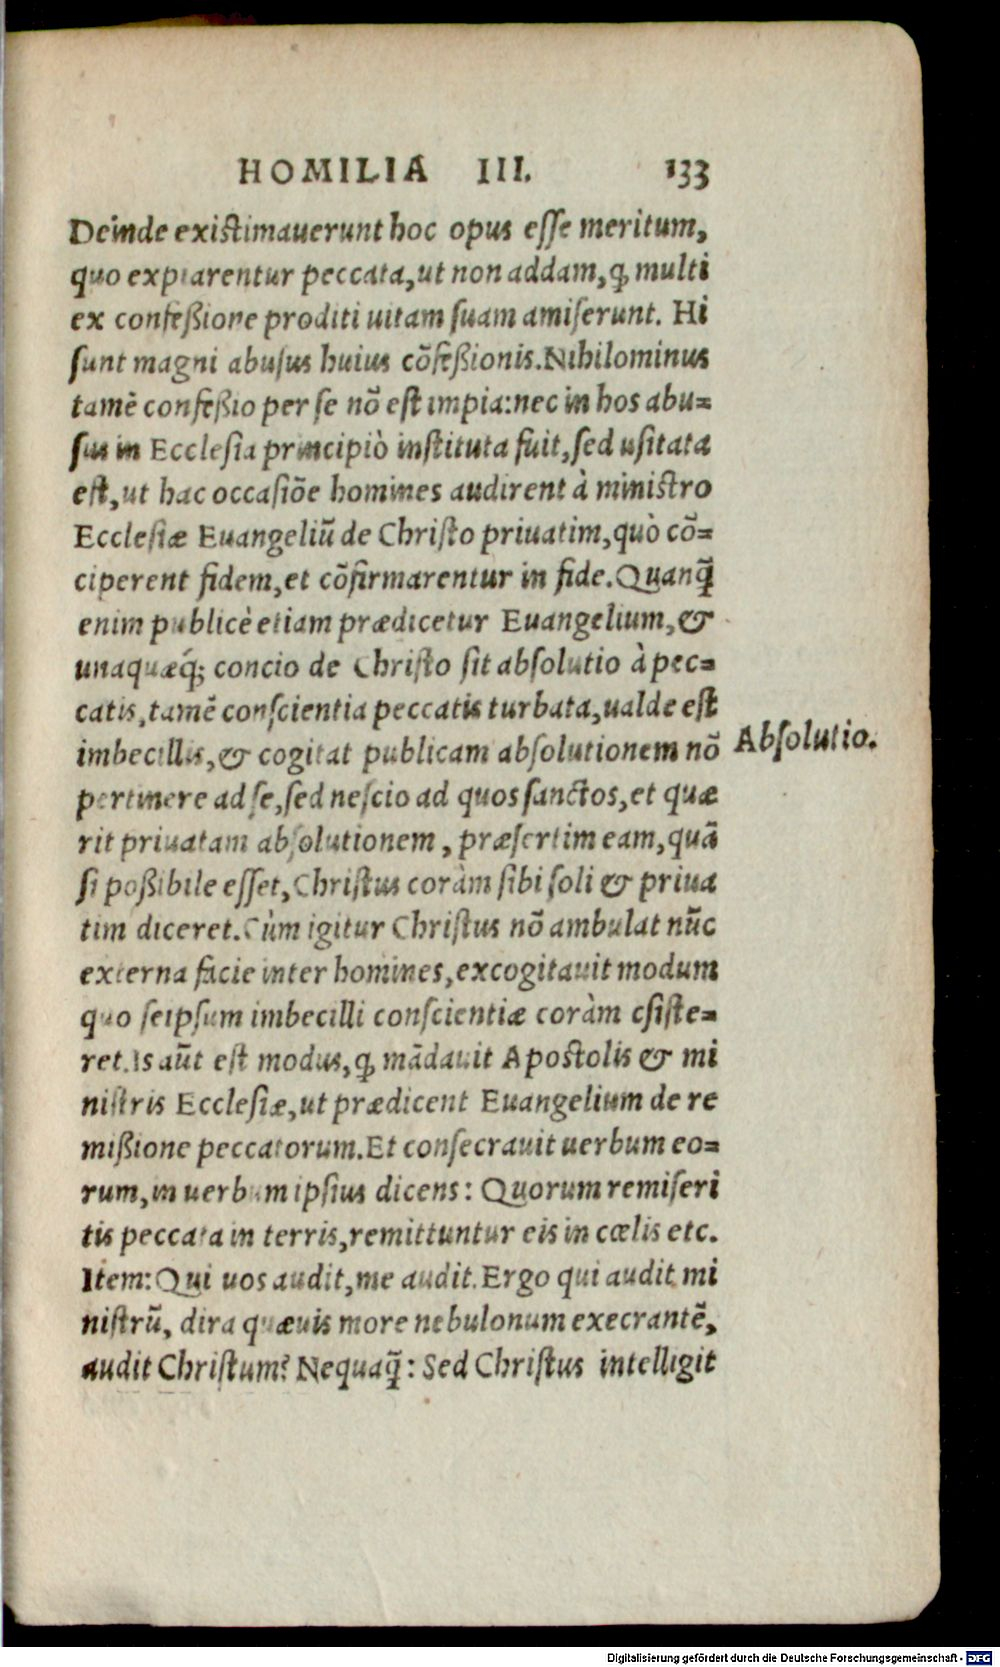 HOMILIA III. 133
Deinde existimauerunt hoc opus esse meritum,
quo expiarentur peccata, ut non addam, ꝙ multi
ex confeßione proditi uitam suam amiserunt. Hi
sunt magni abusus huius cõfeßionis. Nihilominus
tamẽ confeßio per se nõ est impia: nec in hos abu=
sus in Ecclesia principiò instituta fuit, sed usitata
est, ut hac occasiõe homines audirent à ministro
Ecclesiæ Euangeliũ de Christo priuatim, quò cõ=
ciperent fidem, et cõfirmarentur in fide. Quanq̃
enim publicè etiam prædicetur Euangelium, &
unaquæq́; concio de Christo sit absolutio à pec=
catis, tamẽ conscientia peccatis turbata, ualde est
imbecillis, & cogitat publicam absolutionem nõ
Absolutio.
pertinere ad se, sed nescio ad quos sanctos, et quæ
rit priuatam absolutionem, præsertim eam, quã
si poßibile esset, Christus coràm sibi soli & priua
tim diceret. Cùm igitur Christus nõ ambulat nũc
externa facie inter homines, excogitauit modum
quo seipsum imbecilli conscientiæ coràm csiste=
ret. Is aũt est modus, ꝙ mãdauit Apostolis & mi
nistris Ecclesiæ, ut prædicent Euangelium de re
mißione peccatorum. Et consecrauit uerbum eo=
rum, in uerbum ipsius dicens: Quorum remiseri
tis peccata in terris, remittuntur eis in cœlis etc.
Item: Qui uos audit, me audit. Ergo qui audit mi
nistrũ, dira quæuis more nebulonum execrantẽ,
audit Christum? Nequaq̃: Sed Christus intelligit
Digitalisierung gefördert durch die Deutsche Forschungsgemeinschaft - DFG